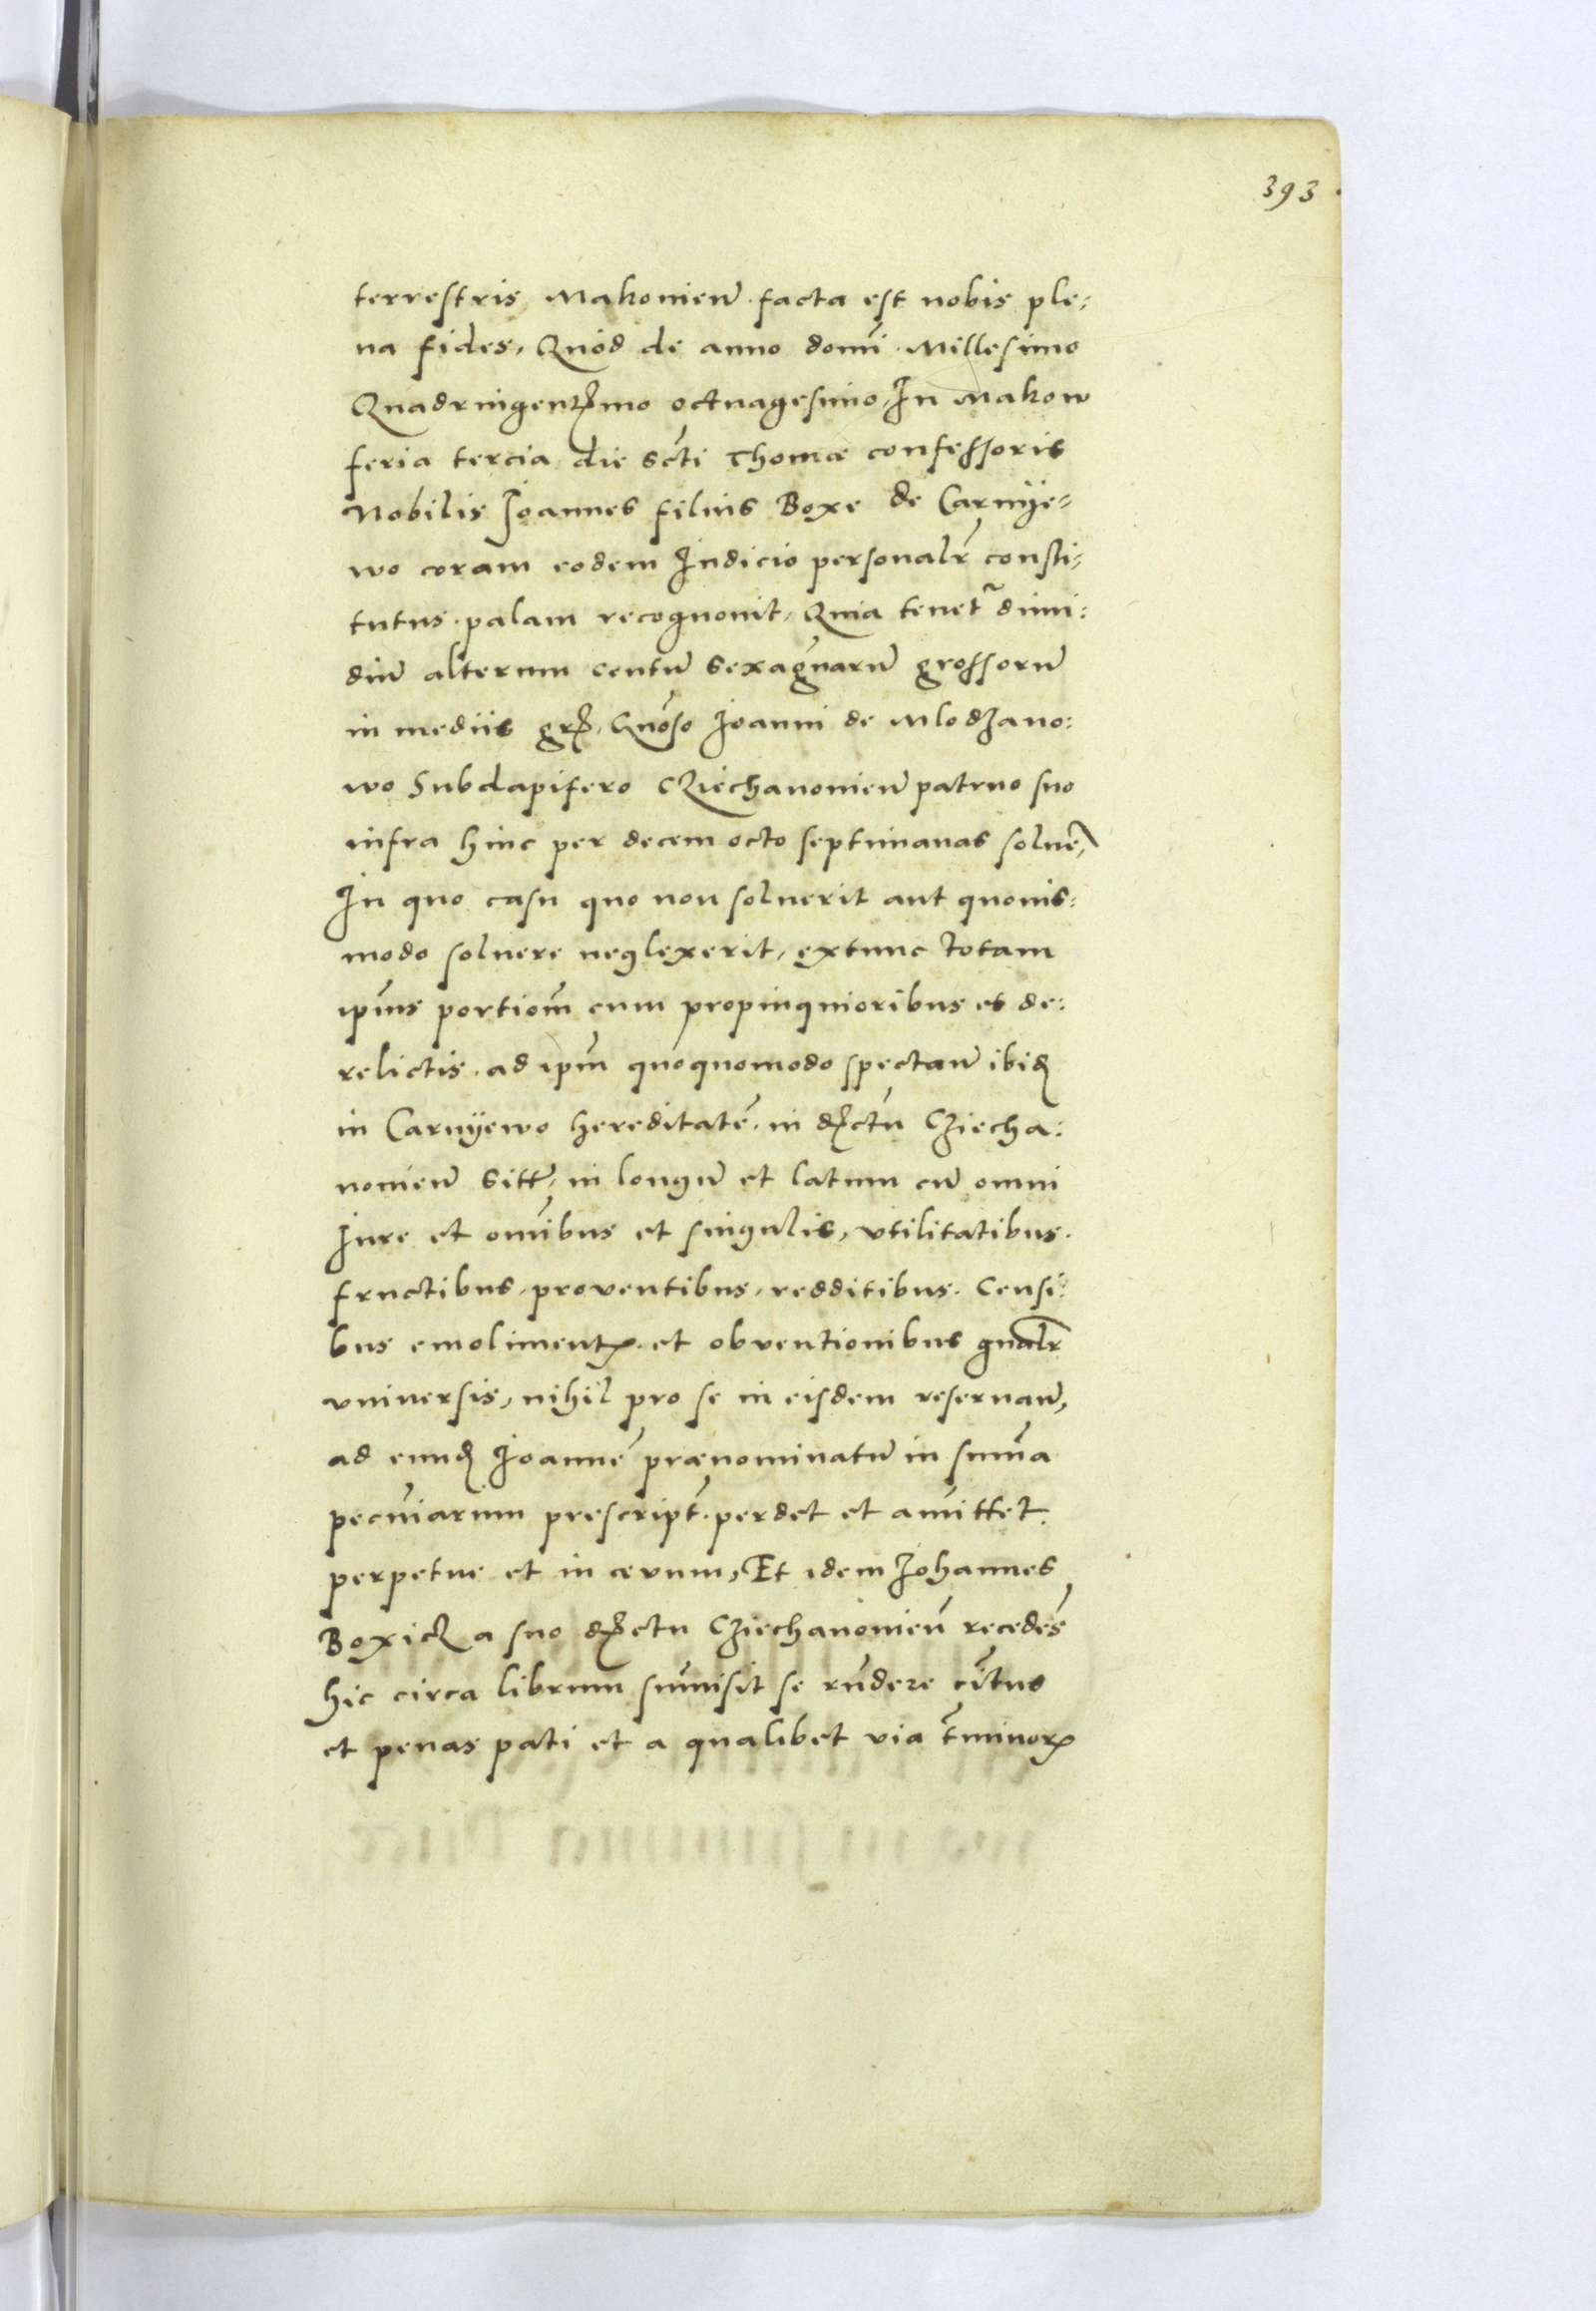 393
terrestris Makonien̄. facta est nobis ple:
na fides, Quòd de anno domī Millesimo
Quadringentꝭmo octuagesimo, In Makow
feria tercia die Scti Thomæ confessoris
Nobilis Joannes filius Boxe de Carnÿe=
wo coram eodem Iudicio personalr̄ consti=
tutus. palam recognouit, Quia tenetr̃ dimi:
diū alterum centū Sexagenarū grossorū
in mediis grꝭ, Gnōso Joanni de Mlodzano:
wo Subdapifero Cziechanonien̄ patruo suo
infra hinc per decem octo septimanas soluē,
In quo casu quo non soluerit aut quouis:
modo soluere neglexerit, extunc totam
ipīus portiōm cum propinquioribus et de:
relictis. ad ipm̄ quoquomodo spectan̄ ibidꝭ
in Carnÿewo hereditatē. in dꝭctu Cziecha:
nonien̄ Sitt̄, in longū et latum cū omni
Iure et omībus et singulis, vtilitatibus.
fructibus, proventibus, redditibus. Censi:
bus emolimentꝭ. et obventionibus gnalr̄
vniversis, nihil pro se in eisdem reseruan̄,
ad eundꝭ Joannē prænominatū in sum̄a
pecūiarum prescript̄. perdet et amittet.
perpetue et in ævum, Et idem Johannes
Boxicz a suo dꝭctu Cziechanonien̄ recedēs
hic circa librum sum̄isit se rūdere cītus
et penas pati et a qualibet via t̄minorꝭ